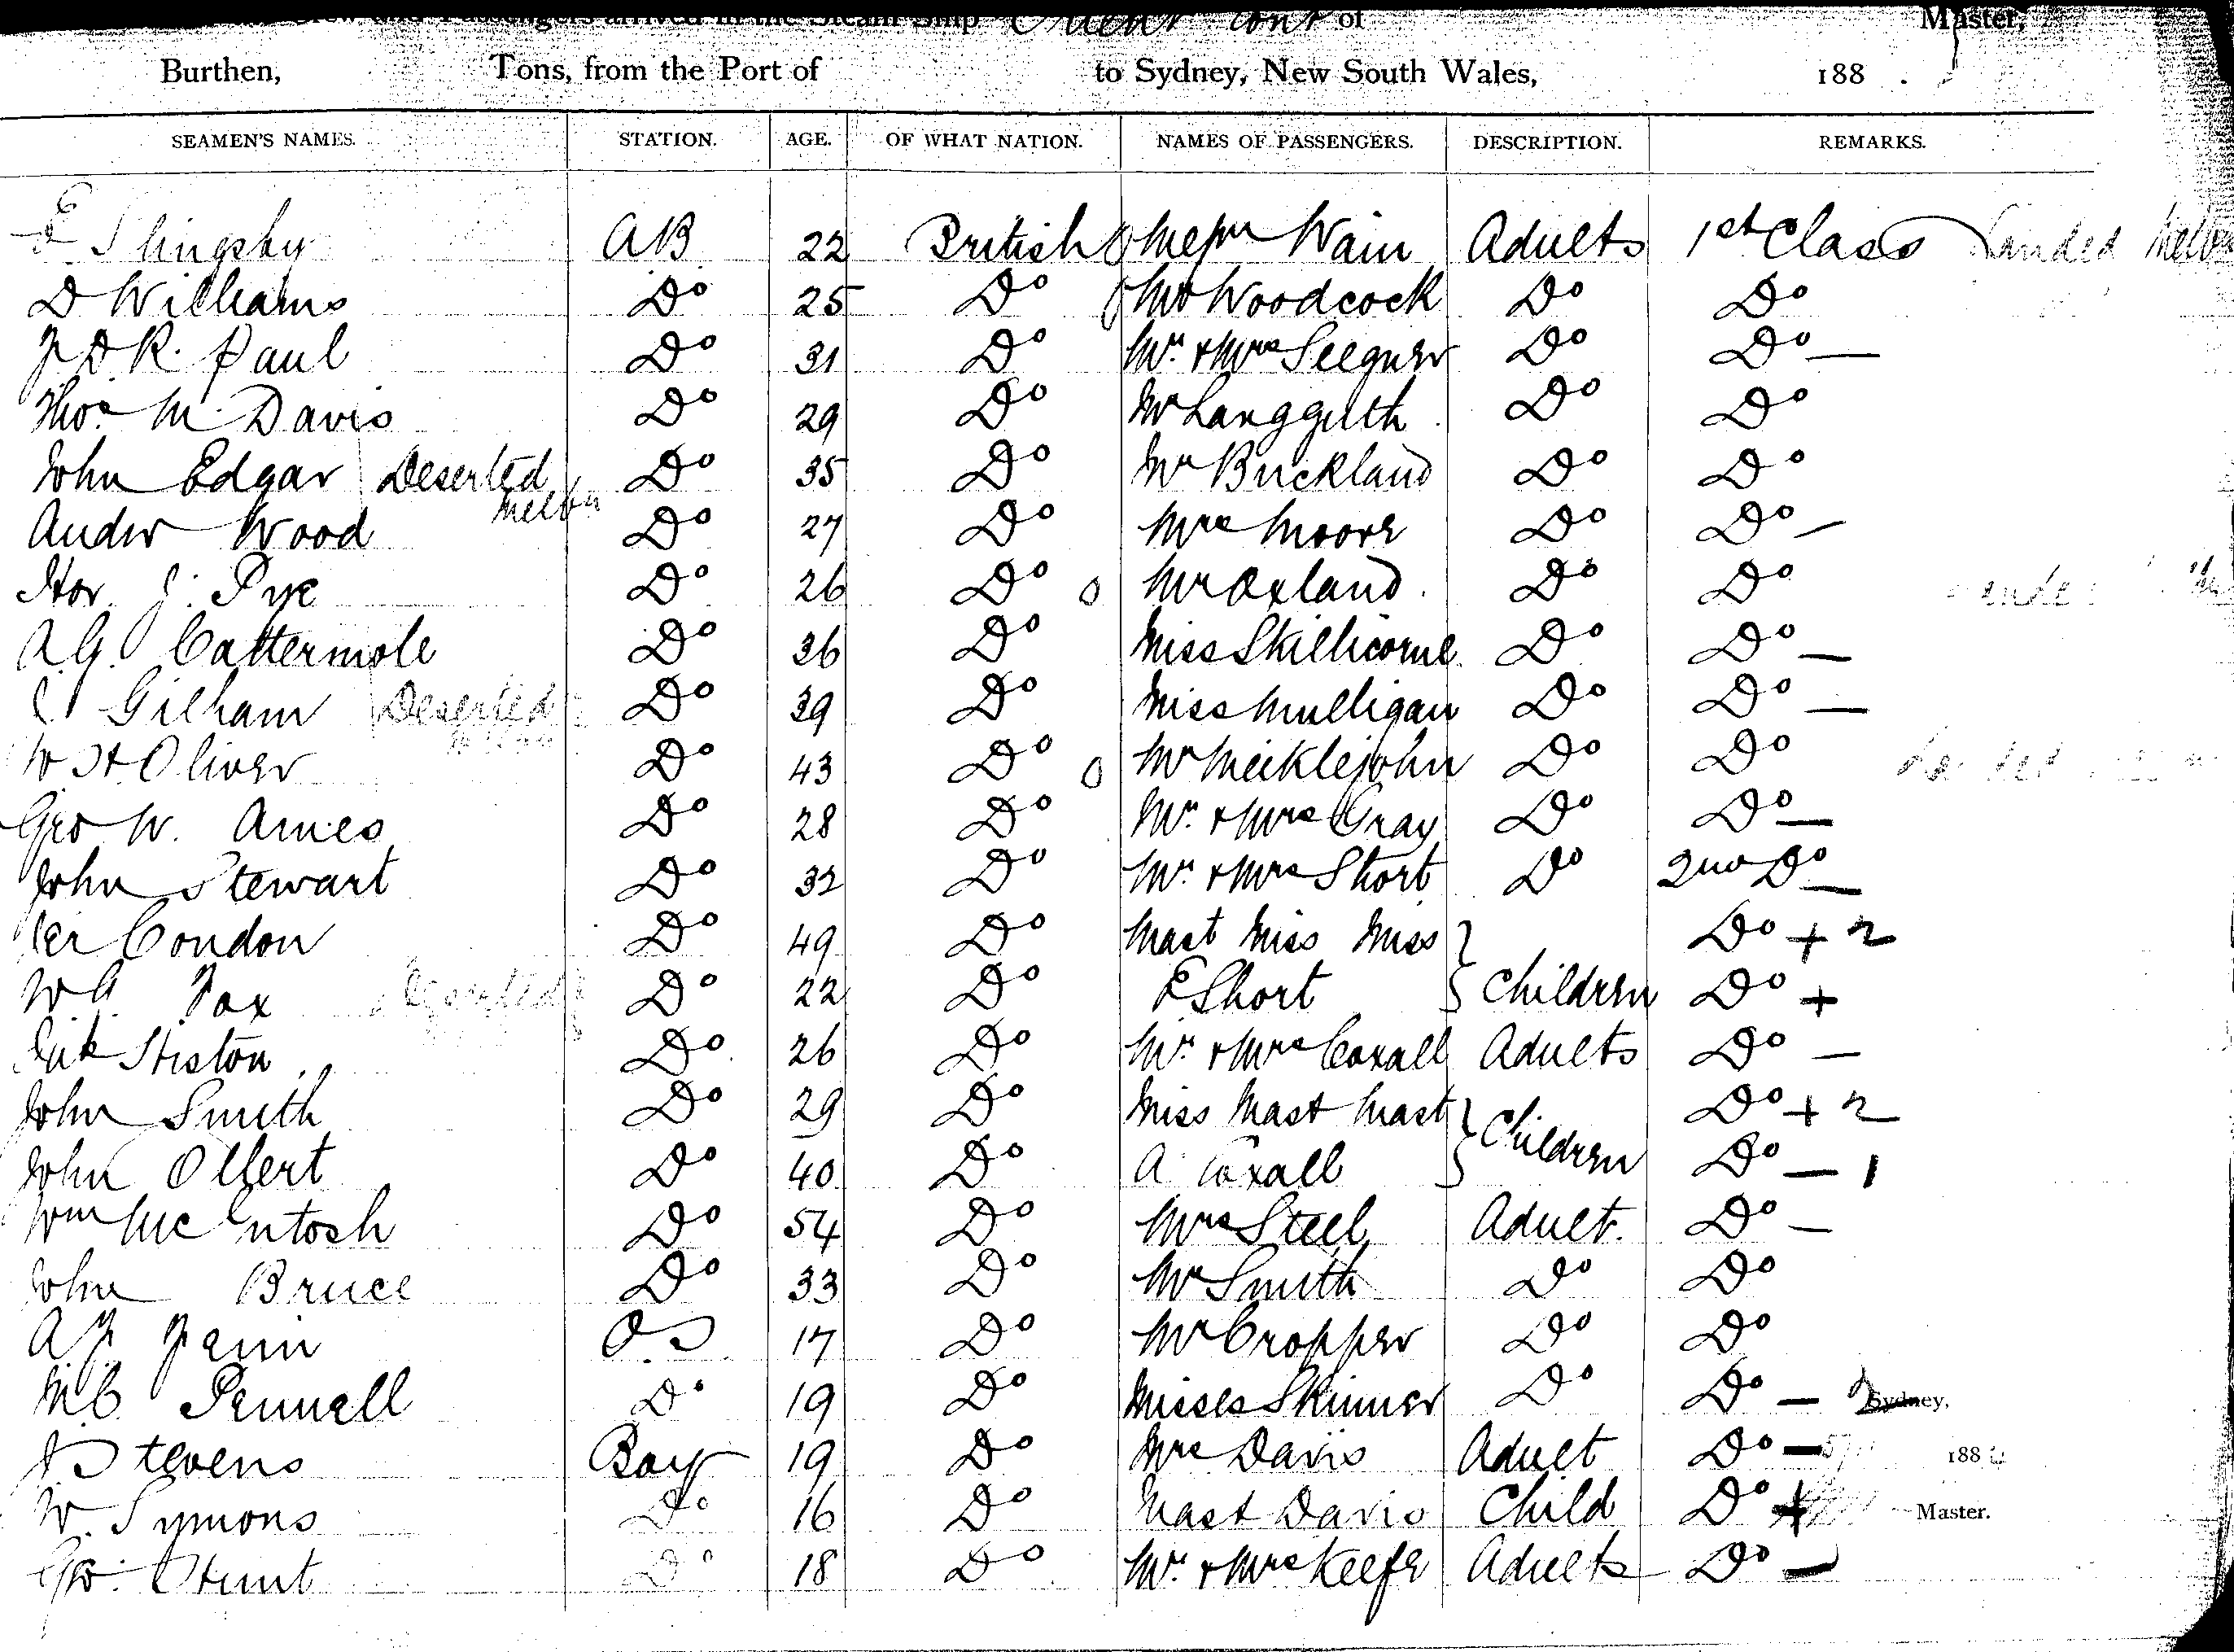 Crew and Passengers arrived in the Steam Ship Orient Cont of Master,
Burthen, Tons, from the Port of to Sydney, New South Wales, 188 .
SEAMEN'S NAMES. STATION. AGE. OF WHAT NATION. NAMES OF PASSENGERS. DESCRIPTION. REMARKS.
E Slingsby AB 22 British Wain Adults 1st Class Landed Melb
D Williams Do 25 Do Mr Woodcock Do Do
J D R. Paul Do 31 Do Mr. & Mrs Seegner Do Do —
Thos M. Davis Do 29 Do Mr Langguth Do Do
John Edgar Deserted Melbn Do 35 Do Mr Buckland Do Do
Andw Wood Do 27 Do Mrs Moore Do Do —
Hor J. Pye Do 26 Do Mr Oxland Do Do
A.G. Cattermole Do 36 Do Miss Skillicorne Do Do —
C Gilham Deserted Do 39 Do Miss Mulligan Do Do —
W H Oliver Do 43 Do Mr Meiklejohn Do Do
Geo W. Ames Do 28 Do Mr. & Mrs Gray Do Do —
John Stewart Do 32 Do Mr. & Mrs Short Do 2nd Do —
Condon Do 49 Do Mast Miss Miss Do + 2
W A. Fox Deserted Do 22 Do E Short Children Do +
Histon Do 26 Do Mr. & Mrs Coxall Adults Do —
John Smith Do 29 Do Miss Mast Mast Children Do + 2
John Olbert Do 40 Do A Coxall Do — 1
Wm McIntosh Do 54 Do Mrs Steel Adult. Do —
John Bruce Do 33 Do Mr Smith Do Do
A.F. Fenn O.S 17 Do Mr Cropper Do Do
M.C. Pennell Do 19 Do Misses Skinner Do Do — 2 Sydney,
J Stevens Boy 19 Do Mrs Davis Adult Do — 188
W. Symons Do 16 Do Mast Davis Child Do + Master.
Geo. Hunt Do 18 Do Mr. & Mrs Keefe Adults Do —